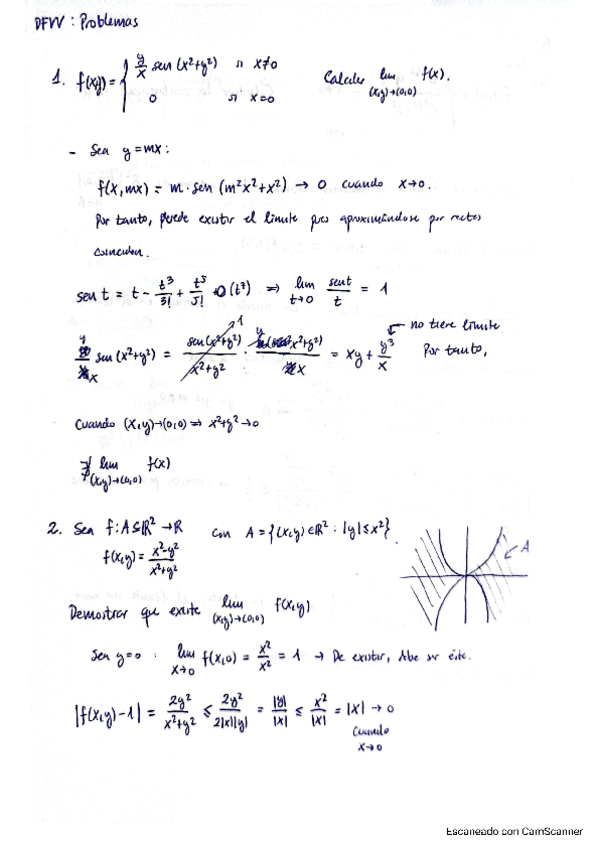 DFVV: Problemas
1. f(x,y) = { y/x sen (x²+y²) si x≠0 Calcular lim f(x).
0 si x=0 (x,y)→(0,0)
- Sea y=mx:
f(x,mx) = m·sen (m²x²+x²) → 0 cuando x→0.
Por tanto, puede existir el límite pues aproximándose por rectas
coinciden.
sen t = t - t³/3! + t⁵/5! O(t⁷) ⇒ lim t→0 sen t/t = 1
y/x sen (x²+y²) = sen(x²+y²)/x²+y² · y(x²+y²)/x = xy + y³/x ← no tiene límite
1 Por tanto,
Cuando (x,y)→(0,0) ⇒ x²+y²→0
∄ lim f(x)
(x,y)→(0,0)
2. Sea f: A⊆ℝ² → ℝ con A = {(x,y)∈ℝ² : |y|≤x²}.
f(x,y) = x²-y²/x²+y²
A
Demostrar que existe lim f(x,y)
(x,y)→(0,0)
Sea y=0 : lim x→0 f(x,0) = x²/x² = 1 → De existir, debe ser éste.
|f(x,y)-1| = 2y²/x²+y² ≤ 2y²/2|x||y| = |y|/|x| ≤ x²/|x| = |x| → 0
cuando
x→0
Escaneado con CamScanner